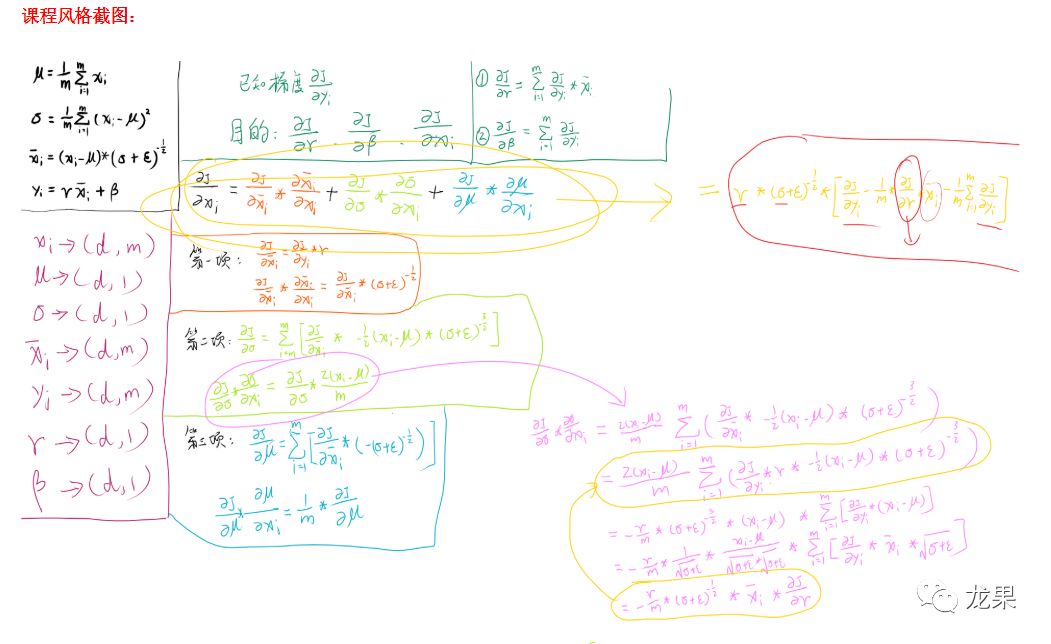 课程风格截图：
μ = 1/m Σ_{i=1}^{m} x_i
σ = 1/m Σ_{i=1}^{m} (x_i - μ)²
x̄_i = (x_i - μ) * (σ + ε)^{-1/2}
y_i = r x̄_i + β
已知梯度 ∂J/∂y_i
目的: ∂J/∂r . ∂J/∂β . ∂J/∂x_i
① ∂J/∂r = Σ_{i=1}^{m} ∂J/∂y_i * x̄_i
② ∂J/∂β = Σ_{i=1}^{m} ∂J/∂y_i
∂J/∂x_i = ∂J/∂x̄_i * ∂x̄_i/∂x_i + ∂J/∂σ * ∂σ/∂x_i + ∂J/∂μ * ∂μ/∂x_i
= r * (σ+ε)^{-1/2} * [∂J/∂y_i - 1/m * ∂J/∂r * x̄_i - 1/m Σ_{i=1}^{m} ∂J/∂y_i]
x_i → (d, m)
μ → (d, 1)
σ → (d, 1)
x̄_i → (d, m)
y_i → (d, m)
r → (d, 1)
β → (d, 1)
第一项: ∂J/∂x̄_i = ∂J/∂y_i * r
∂J/∂x̄_i * ∂x̄_i/∂x_i = ∂J/∂x̄_i * (σ+ε)^{-1/2}
第二项: ∂J/∂σ = Σ_{i=m}^{m} [∂J/∂x̄_i * -1/2 (x_i - μ) * (σ+ε)^{-3/2}]
∂J/∂σ * ∂σ/∂x_i = ∂J/∂σ * 2(x_i - μ)/m
第三项: ∂J/∂μ = Σ_{i=1}^{m} [∂J/∂x̄_i * (-(σ+ε)^{-1/2})]
∂J/∂μ * ∂μ/∂x_i = 1/m * ∂J/∂μ
∂J/∂σ * ∂σ/∂x_i = 2(x_i - μ)/m Σ_{i=1}^{m} (∂J/∂x̄_i * -1/2 (x_i - μ) * (σ+ε)^{-3/2})
= 2(x_i - μ)/m Σ_{i=1}^{m} (∂J/∂y_i * r * -1/2 (x_i - μ) * (σ+ε)^{-3/2})
= - r/m * (σ+ε)^{-3/2} * (x_i - μ) * Σ_{i=1}^{m} [∂J/∂y_i * (x_i - μ)]
= - r/m * 1/√(σ+ε) * (x_i - μ)/(√(σ+ε) * √(σ+ε)) * Σ_{i=1}^{m} [∂J/∂y_i * x̄_i * √(σ+ε)]
= - r/m * (σ+ε)^{-1/2} * x̄_i * ∂J/∂r
龙果